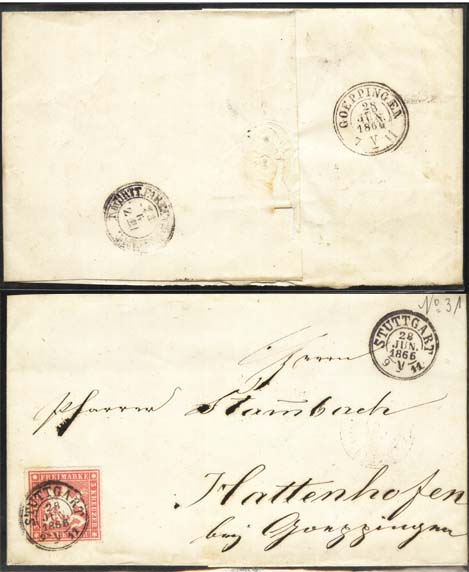 GOEPPINGEN
28
JUN.
1866
7 V 11
No 31
STUTTGART
28
JUN.
1866
9 V 11
Herrn
Pfarrer Stambach
Hattenhofen
bey Goeppingen
FREIMARKE
STUTTGART
28
JUN.
1866
9 V 11